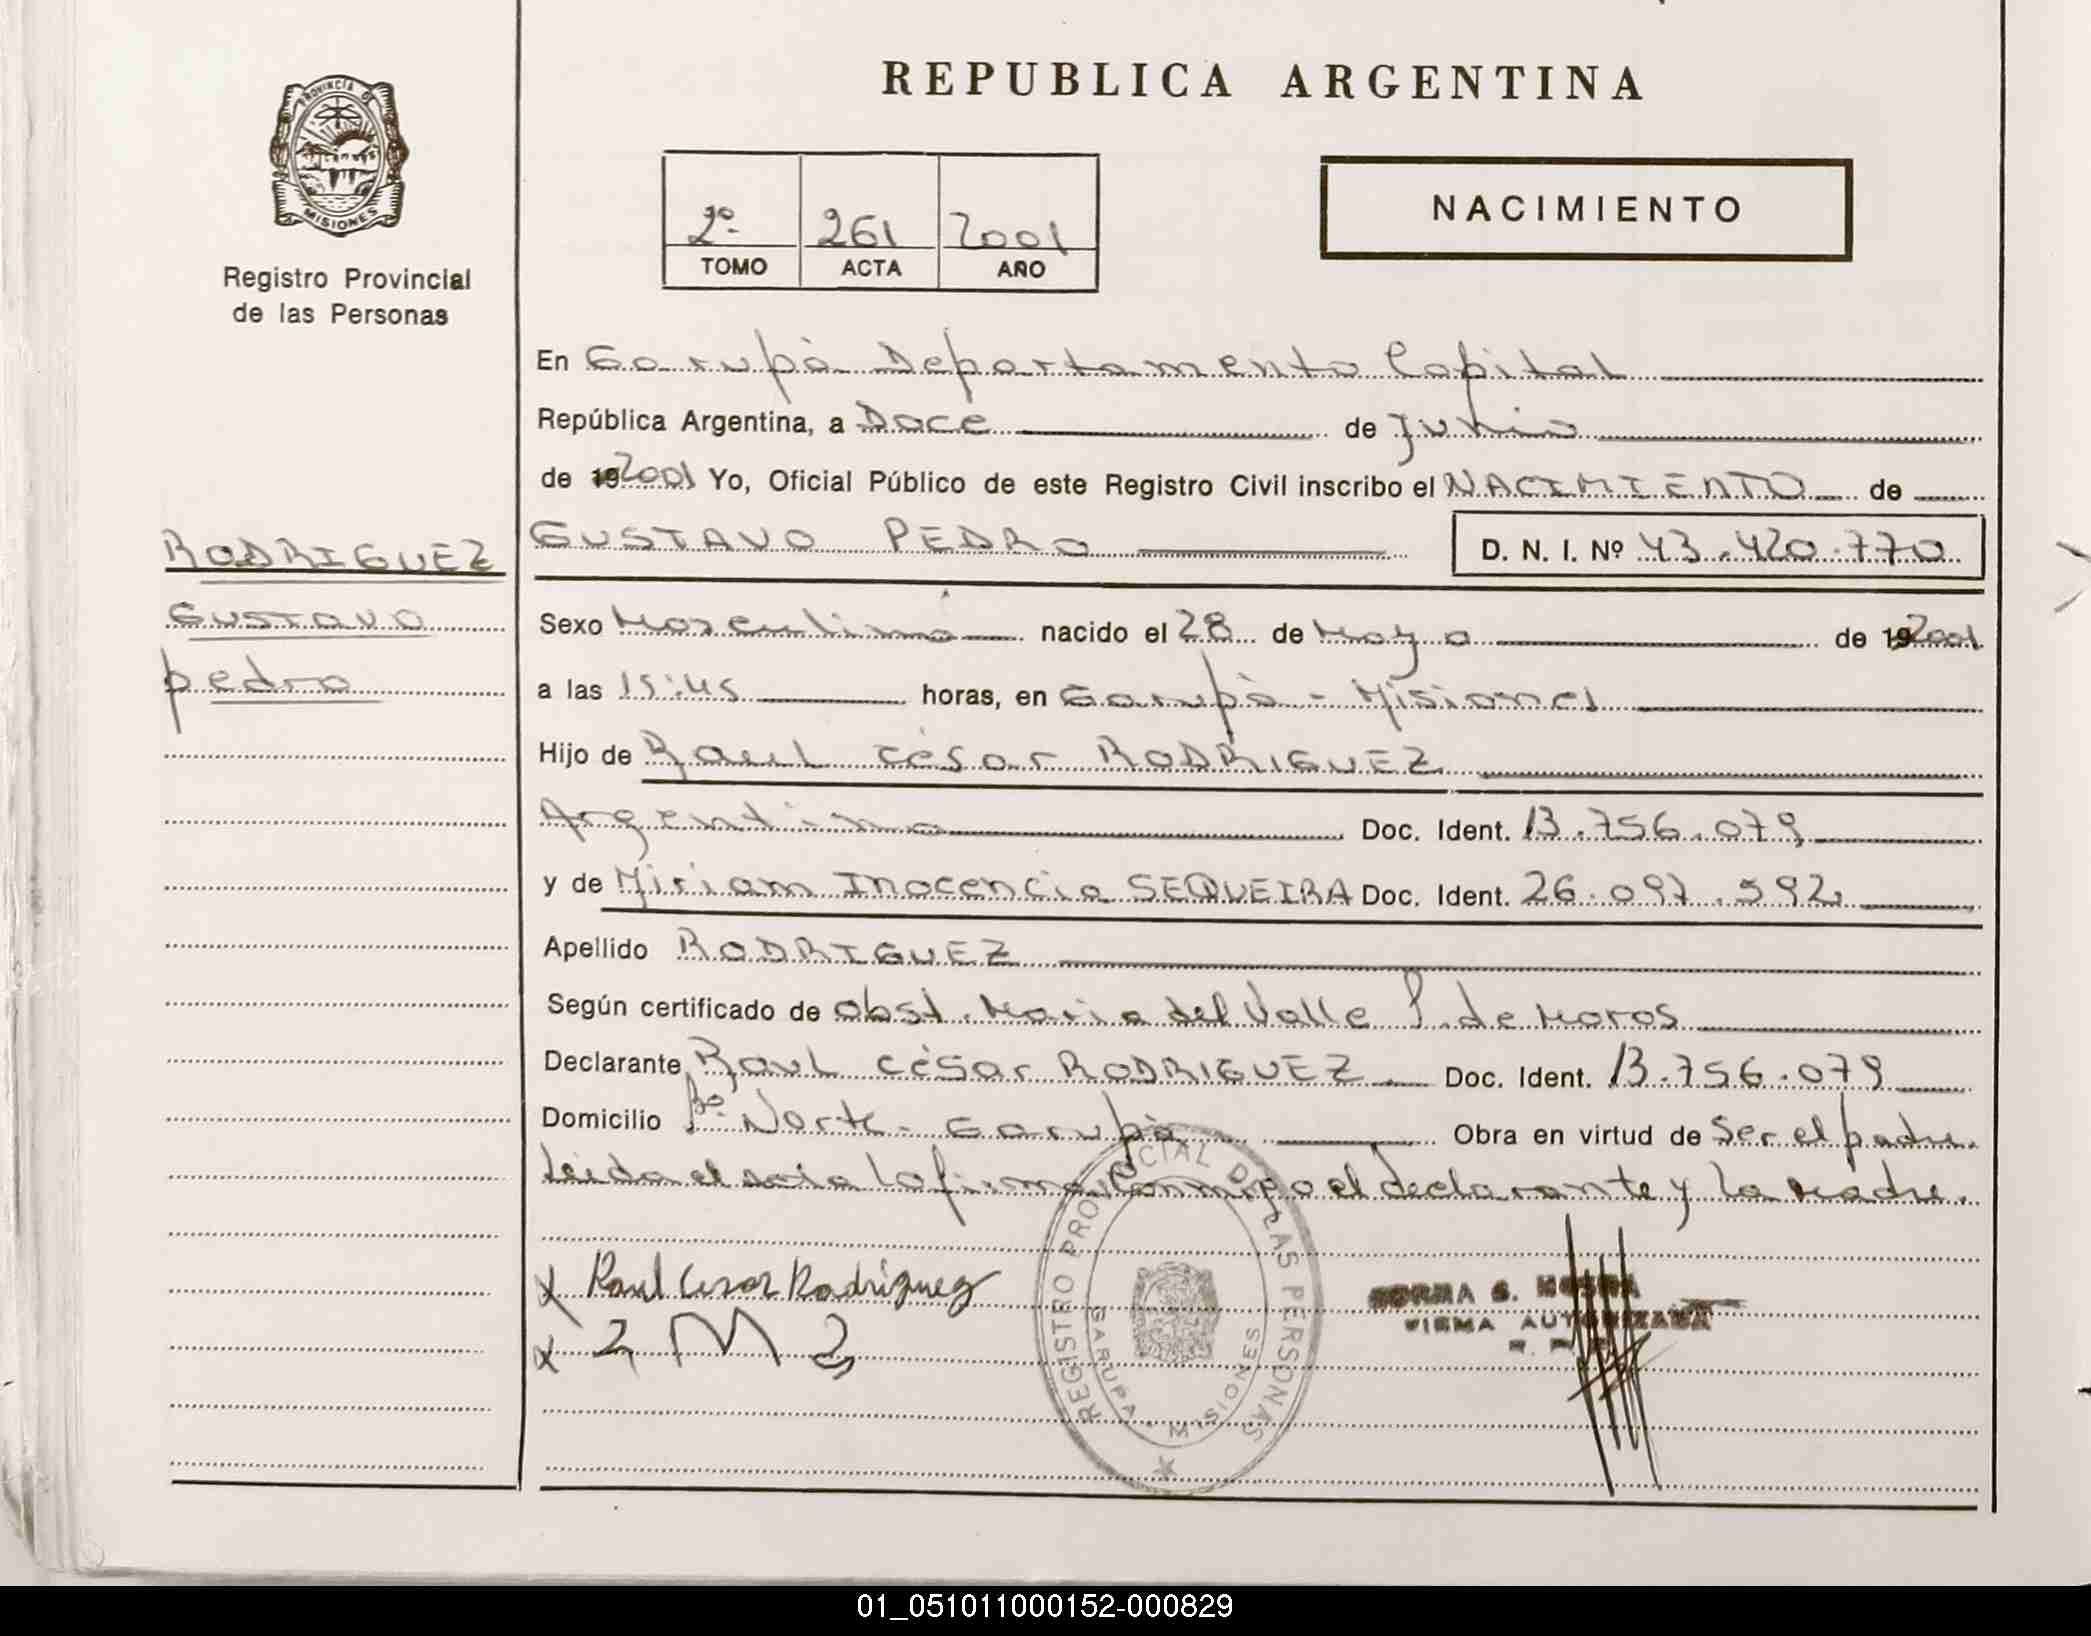 REPUBLICA ARGENTINA
PROVINCIA D
MISIONES
Registro Provincial
de las Personas
NACIMIENTO
2º 261 2001
TOMO ACTA AÑO
En Garupà Departamento Capital
República Argentina, a Doce de Junio
de 192001 Yo, Oficial Público de este Registro Civil inscribo el NACIMIENTO de
RODRIGUEZ
GUSTAVO PEDRO D. N. I. Nº 43.420.770
Gustavo
pedro
Sexo Masculino nacido el 28 de Mayo de 192001
a las 15:45 horas, en Garupà - Misiones
Hijo de Raul César RODRIGUEZ
Argentino Doc. Ident. 13.756.079
y de Miriam Inocencia SEQUEIRA Doc. Ident. 26.097.592
Apellido RODRIGUEZ
Según certificado de Obst. Maria del Valle S. de Moros
Declarante Raul César RODRIGUEZ Doc. Ident. 13.756.079
Domicilio Bº Norte - Garupà Obra en virtud de Ser el padre.
Leida el acta la firman conmigo el declarante y la Madre.
x Raul Cesar Rodriguez
x
REGISTRO PROVINCIAL DE LAS PERSONAS
GARUPA - MISIONES
NORMA S.
FIRMA AUTORIZADA
01_051011000152-000829